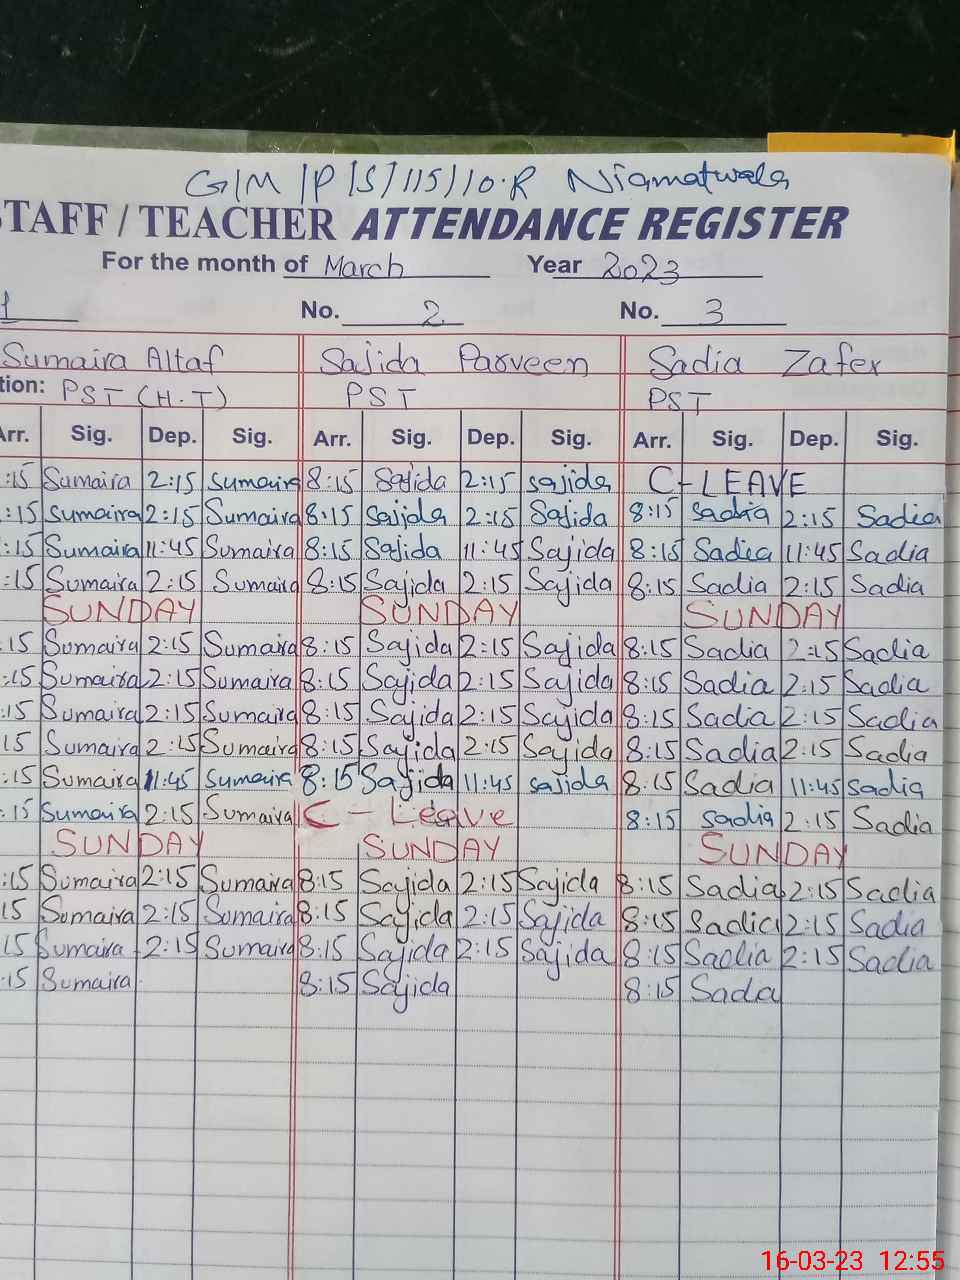 G/M/P/S/115/10.R Niamatwala
STAFF / TEACHER ATTENDANCE REGISTER
For the month of March Year 2023
1 No. 2 No. 3
Sumaira Altaf Sajida Parveen Sadia Zafer
tion: PST (H.T) PST PST
Arr. Sig. Dep. Sig. Arr. Sig. Dep. Sig. Arr. Sig. Dep. Sig.
:15 Sumaira 2:15 Sumaira 8:15 Sajida 2:15 Sajida C-LEAVE
:15 Sumaira 2:15 Sumaira 8:15 Sajida 2:15 Sajida 8:15 Sadia 2:15 Sadia
:15 Sumaira 11:45 Sumaira 8:15 Sajida 11:45 Sajida 8:15 Sadia 11:45 Sadia
:15 Sumaira 2:15 Sumaira 8:15 Sajida 2:15 Sajida 8:15 Sadia 2:15 Sadia
SUNDAY SUNDAY SUNDAY
:15 Sumaira 2:15 Sumaira 8:15 Sajida 2:15 Sajida 8:15 Sadia 2:15 Sadia
:15 Sumaira 2:15 Sumaira 8:15 Sajida 2:15 Sajida 8:15 Sadia 2:15 Sadia
:15 Sumaira 2:15 Sumaira 8:15 Sajida 2:15 Sajida 8:15 Sadia 2:15 Sadia
15 Sumaira 2:15 Sumaira 8:15 Sajida 2:15 Sajida 8:15 Sadia 2:15 Sadia
:15 Sumaira 11:45 Sumaira 8:15 Sajida 11:45 sajida 8:15 Sadia 11:45 sadia
:15 Sumaira 2:15 Sumaira C - Leave 8:15 sadia 2:15 Sadia
SUNDAY SUNDAY SUNDAY
:15 Sumaira 2:15 Sumaira 8:15 Sajida 2:15 Sajida 8:15 Sadia 2:15 Sadia
15 Sumaira 2:15 Sumaira 8:15 Sajida 2:15 Sajida 8:15 Sadia 2:15 Sadia
15 Sumaira 2:15 Sumaira 8:15 Sajida 2:15 Sajida 8:15 Sadia 2:15 Sadia
:15 Sumaira 8:15 Sajida 8:15 Sada
16-03-23 12:55